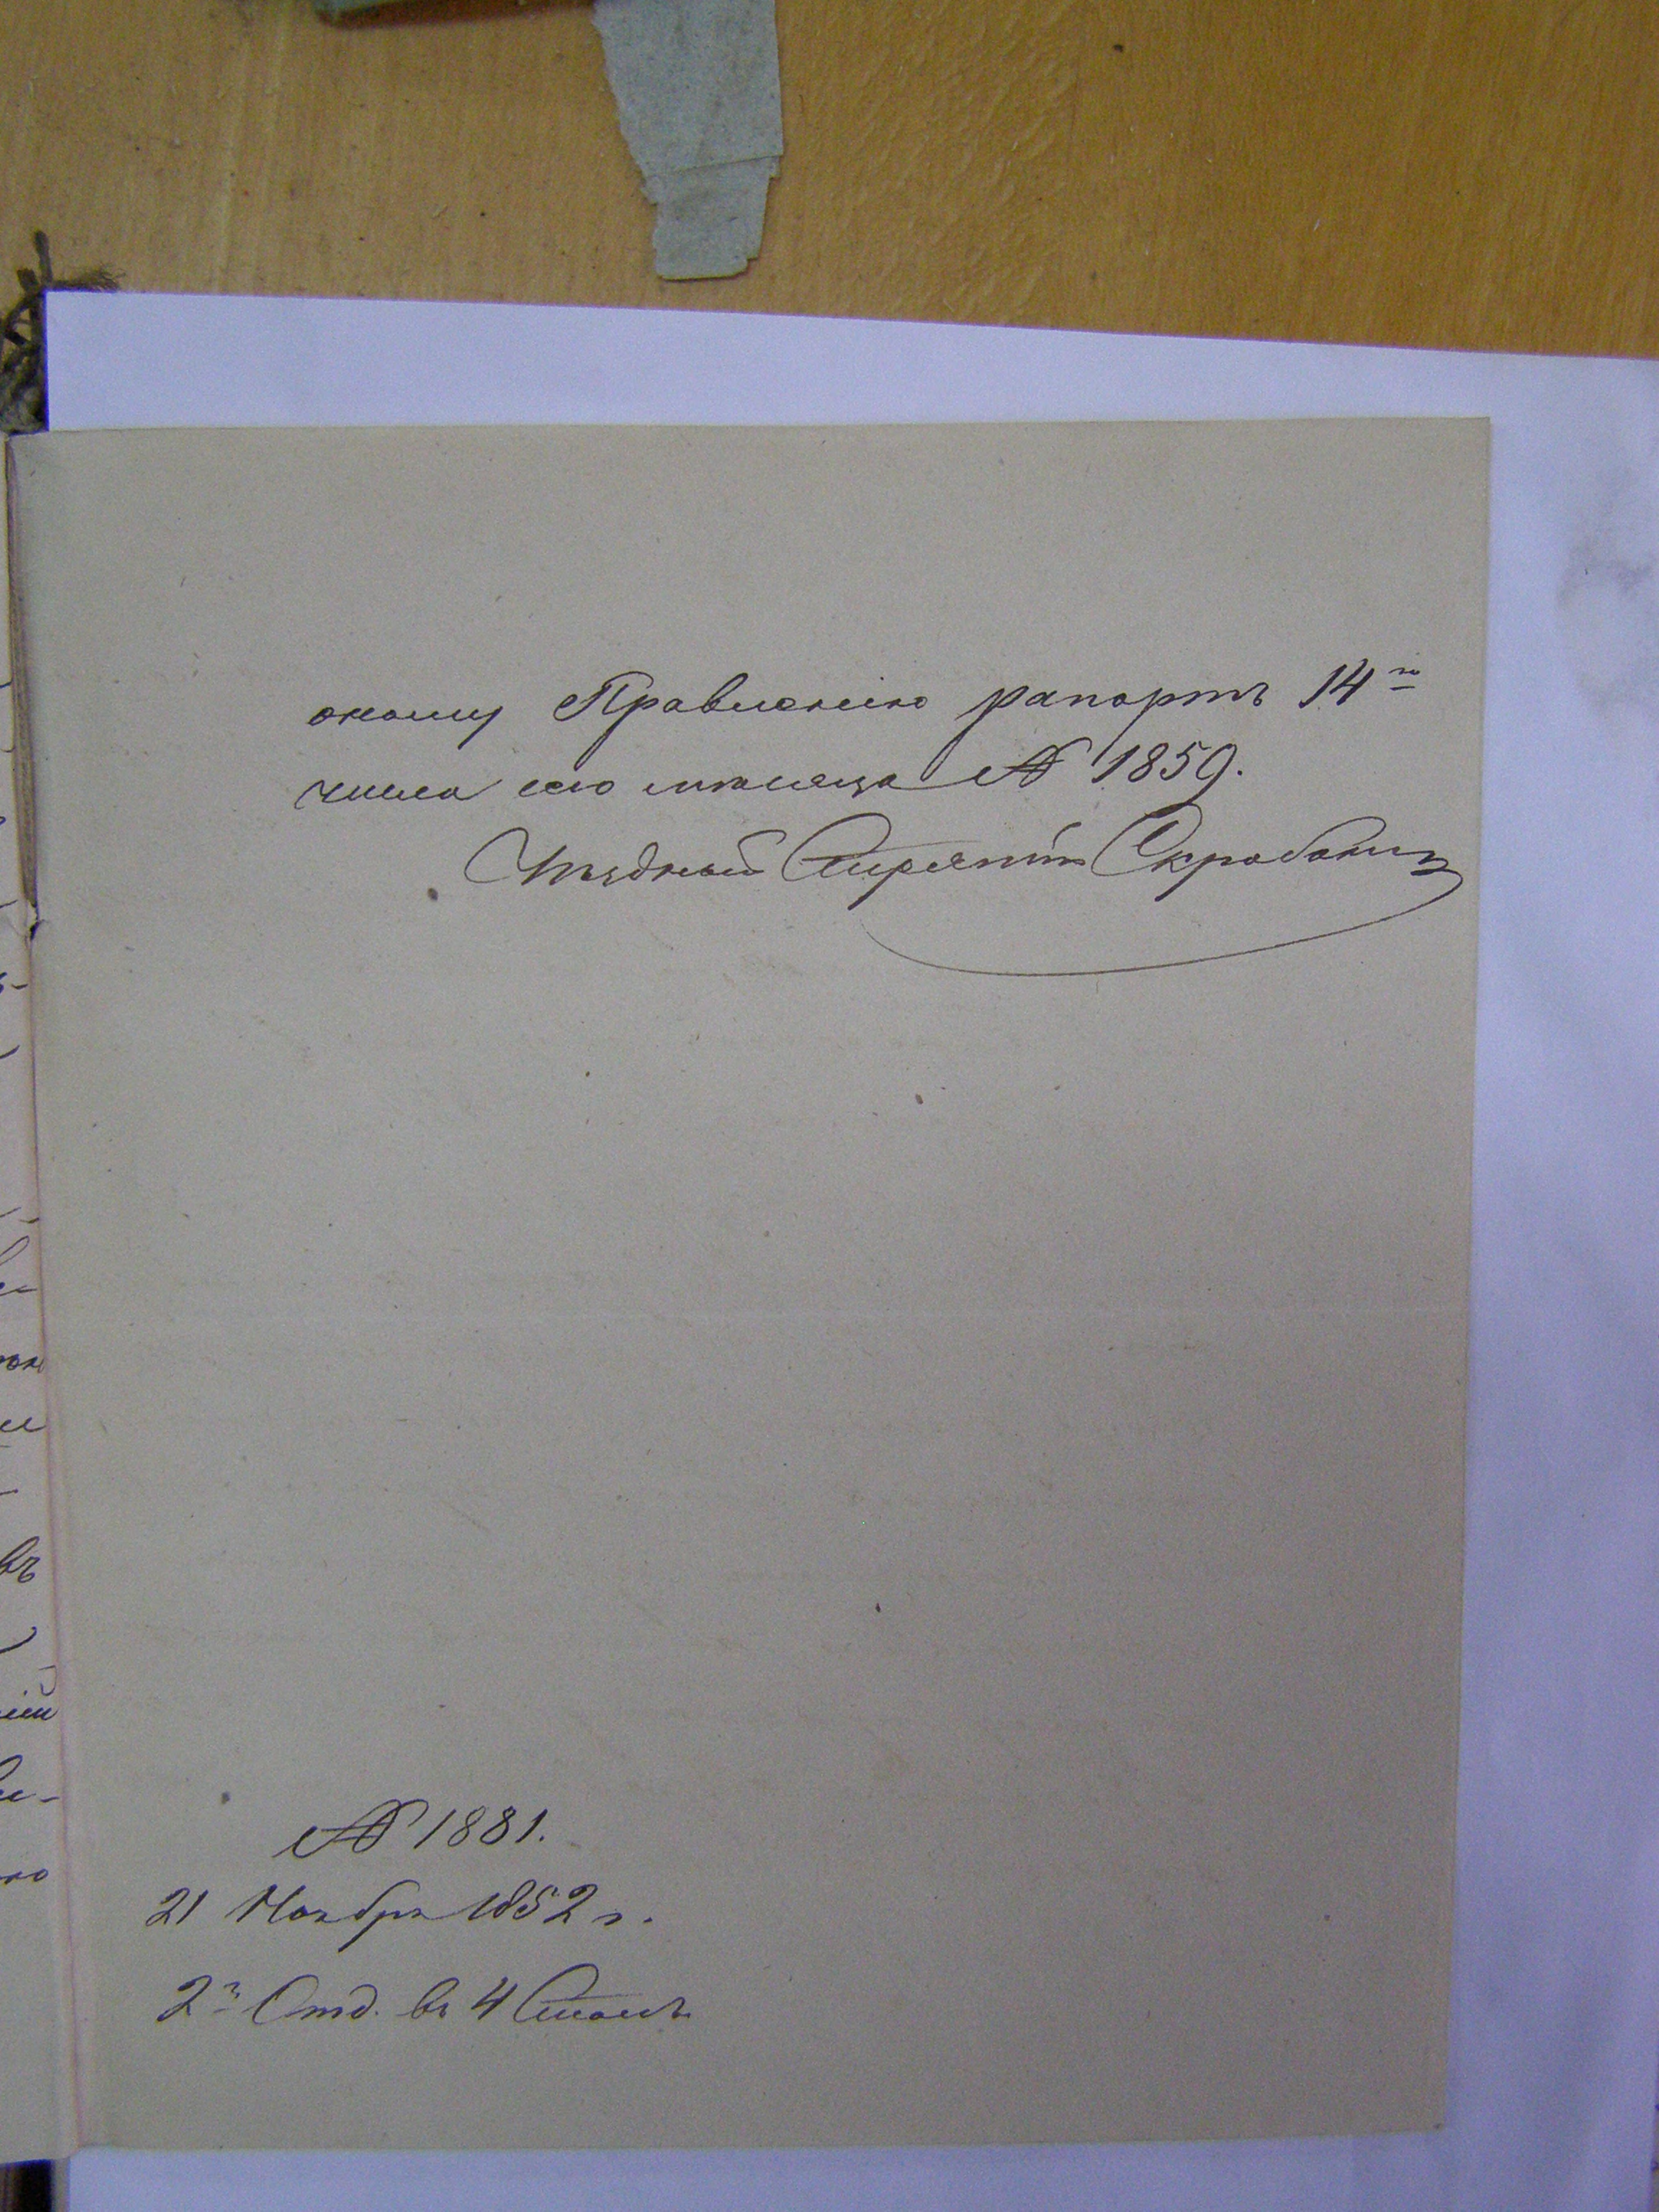 оному Правленію рапортъ 14го
числа сего мѣсяца № 1859.
Уѣздный Стряпчій
№ 1881.
21 Ноября 1852 г.
2е Отд. въ 4 Столъ